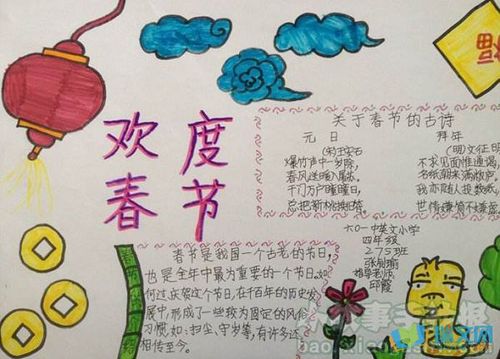 福
欢度
春节
关于春节的古诗
元日
(宋)王安石
爆竹声中一岁除,
春风送暖入屠苏.
千门万户曈曈日,
总把新桃换旧符
拜年
(明)文征明
不求见面惟通谒,
名纸朝来满敝庐.
我亦随人投数纸,
世情嫌简不嫌虚.
六〇一中英文小学
四年级
275班
指导老师
邱霞
春节是我国一个古老的节日,
也是全年中最为重要的一个节日,如
何过庆贺这个节日,在千百年的历史发
展中,形成了一些较为固定的风俗
习惯,如:扫尘、守岁等,有许多还
相传至今。